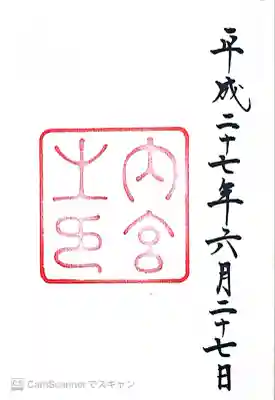 平成二十七年六月二十七日
内宮
之印
CamScannerでスキャン